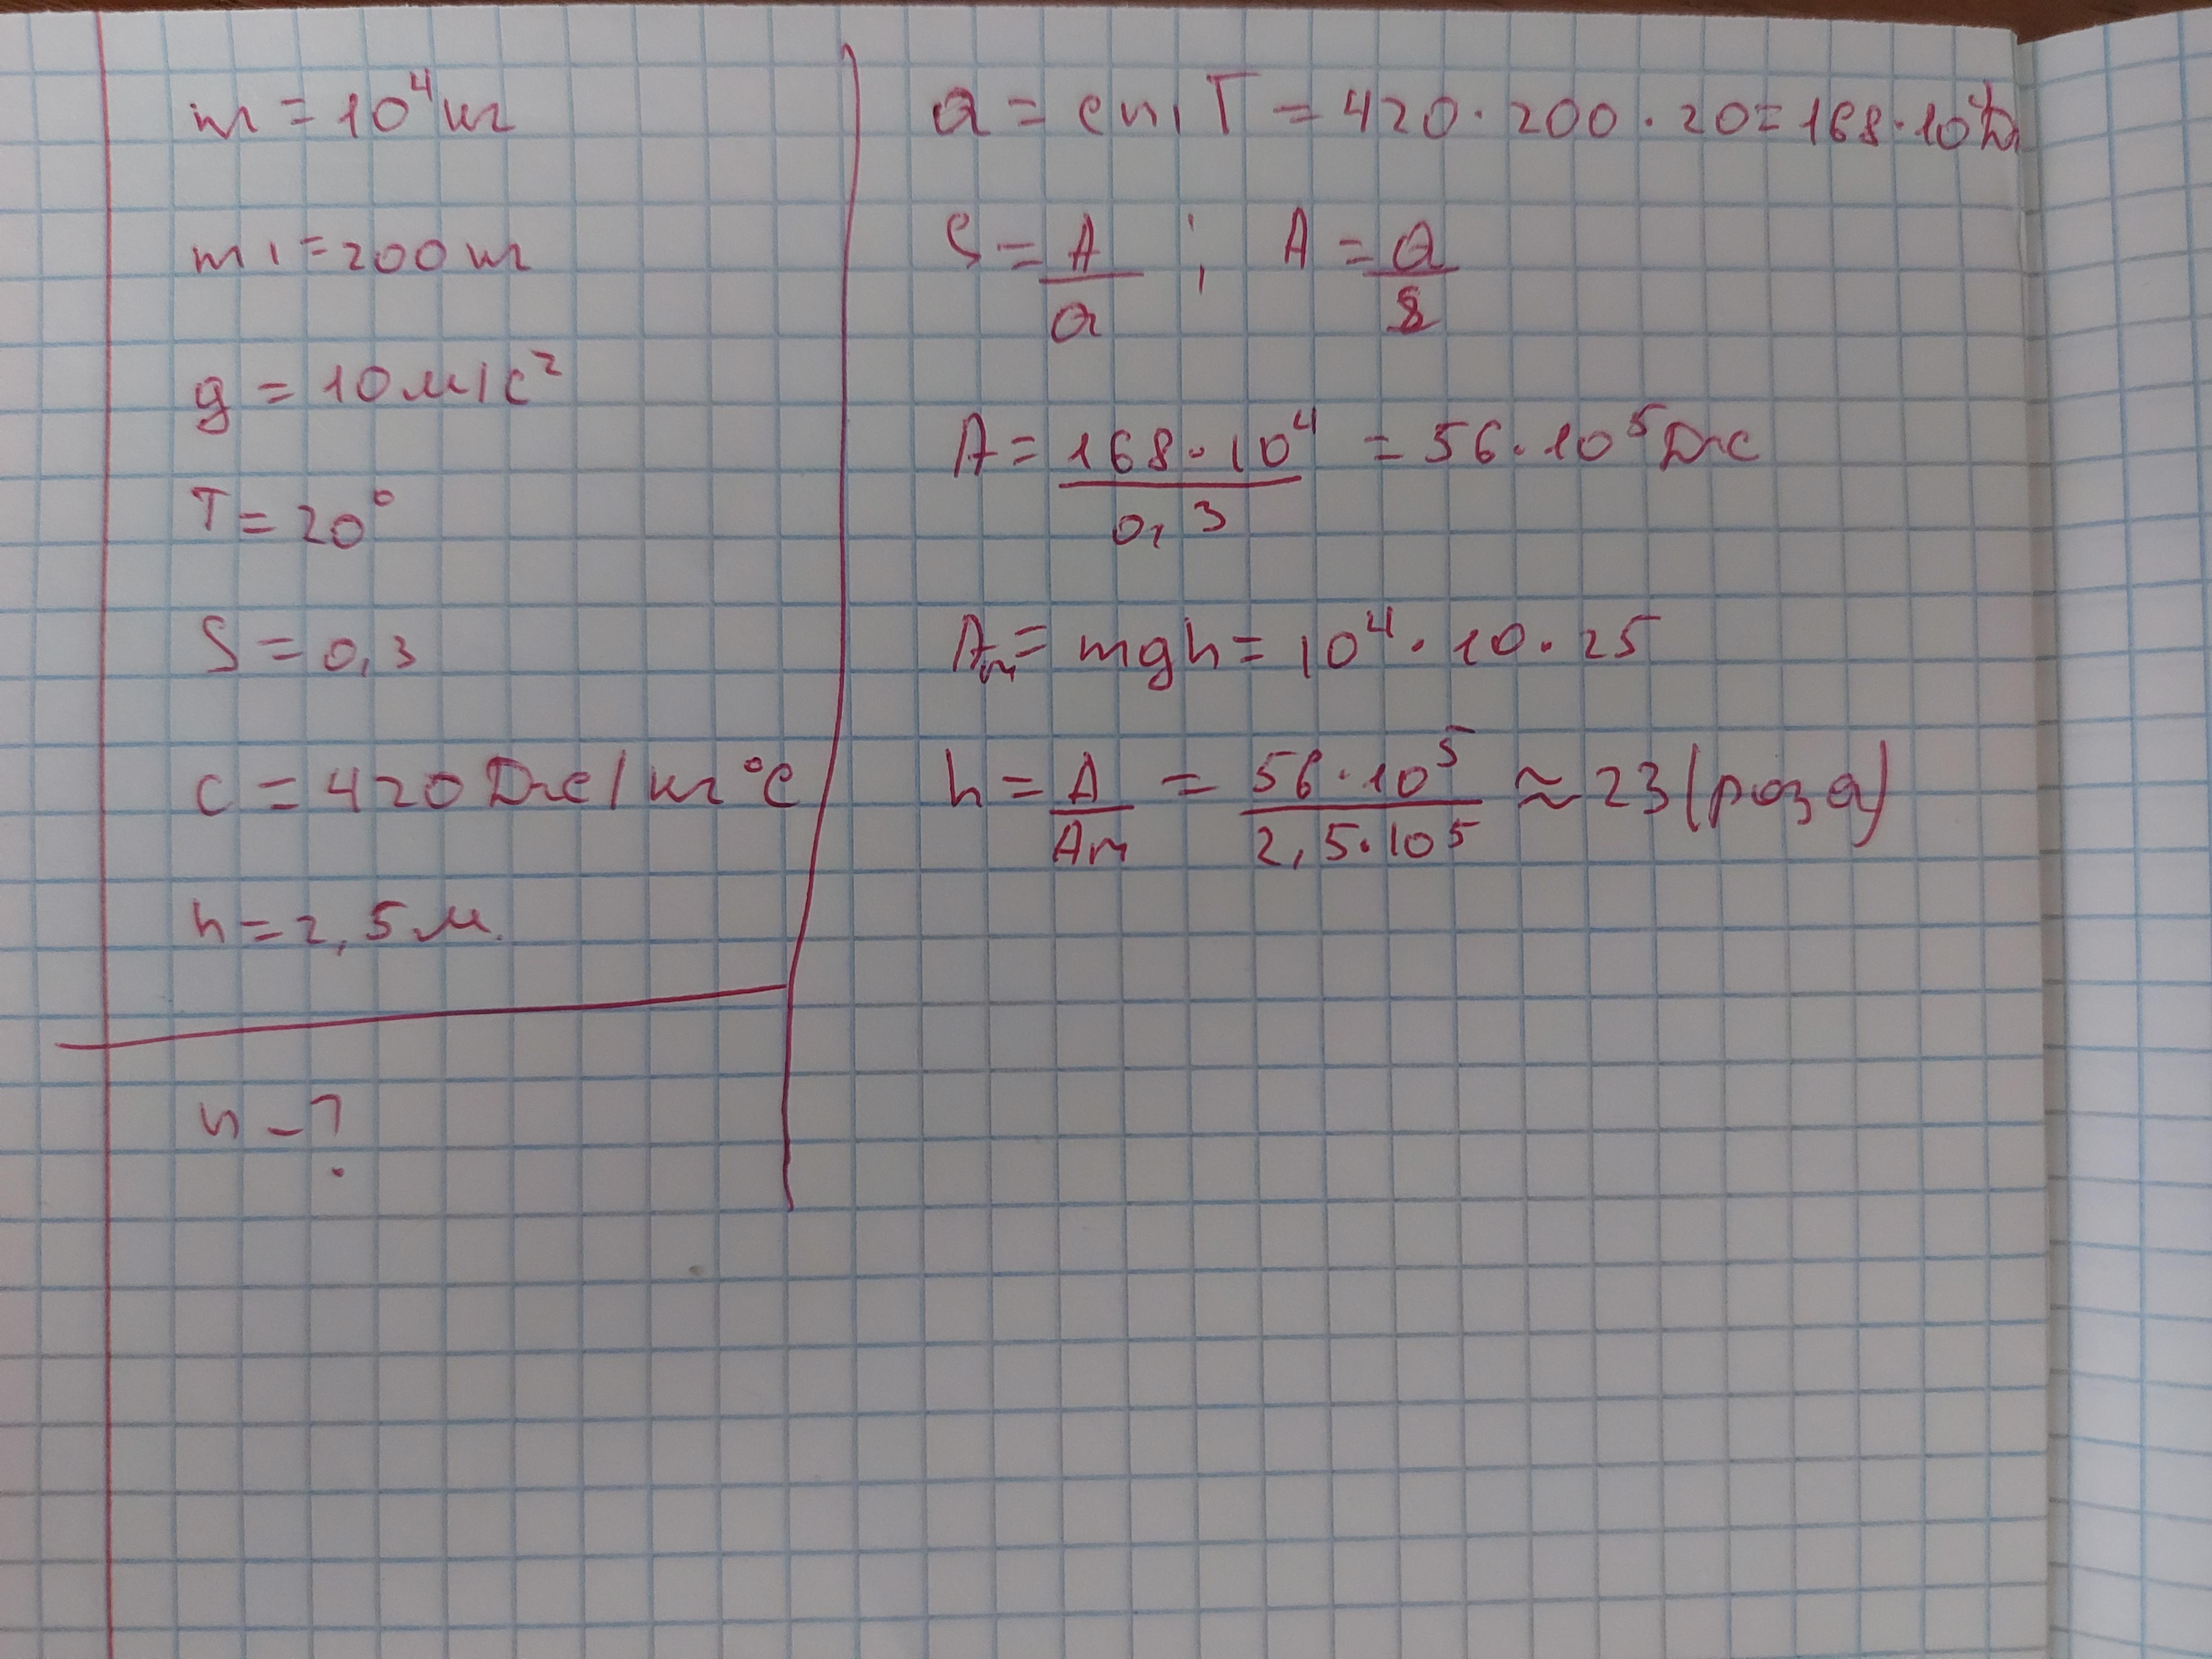 m = 10⁴ кг
m1 = 200 кг
g = 10 м/с²
T = 20°
S = 0,3
c = 420 Дж/кг°С
h = 2,5 м.
n - ?
Q = cm1T = 420 · 200 · 20 = 168 · 10⁴ Д
S = A/Q ; A = Q/S
A = 168 · 10⁴/0,3 = 56 · 10⁵ Дж
Aм = mgh = 10⁴ · 10 · 25
h = A/Am = 56 · 10⁵/2,5 · 10⁵ ≈ 23 (роза)